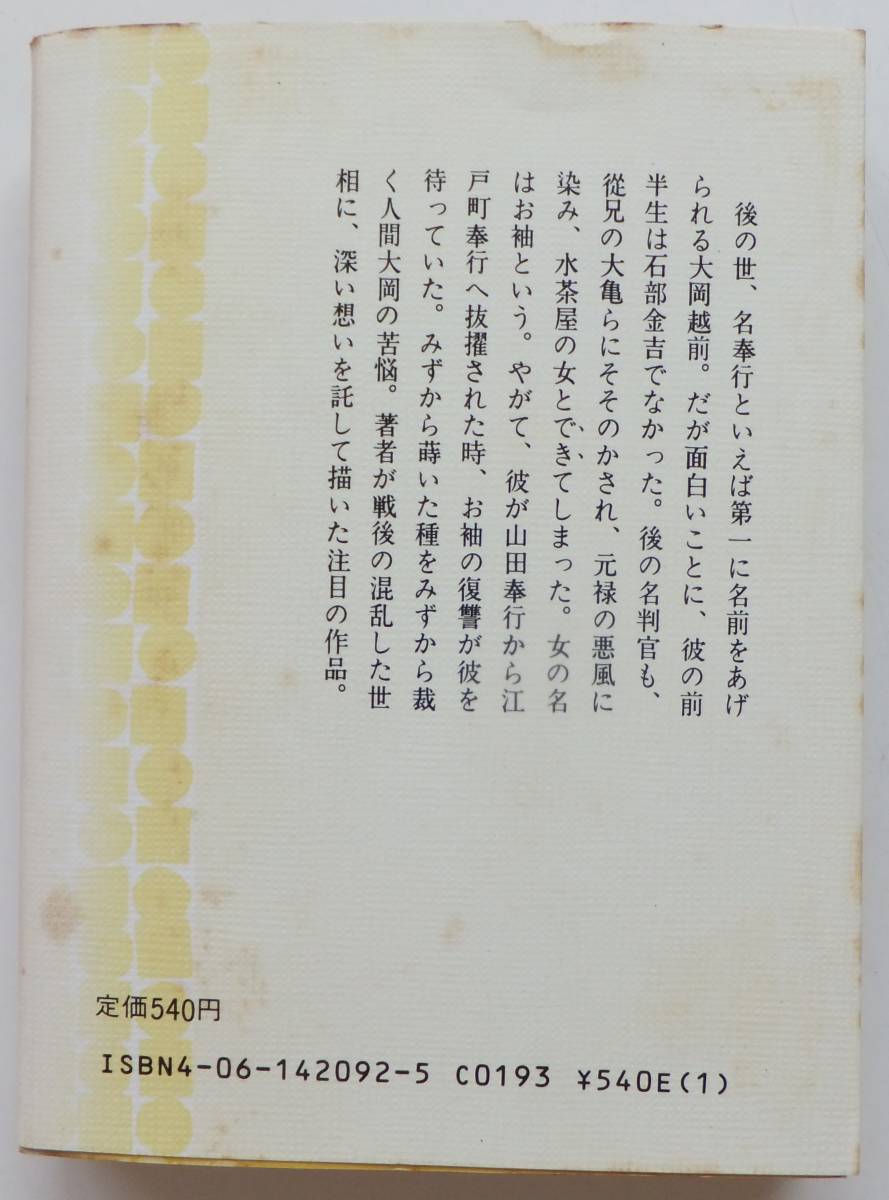 後の世、名奉行といえば第一に名前をあげ
られる大岡越前。だが面白いことに、彼の前
半生は石部金吉でなかった。後の名判官も、
從兄の大亀らにそそのかされ、元禄の悪風に
染み、水茶屋の女とできてしまった。女の名
はお袖という。やがて、彼が山田奉行から江
戸町奉行へ抜擢された時、お袖の復讐が彼を
待っていた。みずから蒔いた種をみずから裁
く人間大岡の苦悩。著者が戦後の混乱した世
相に、深い想いを託して描いた注目の作品。
定価540円
ISBN4-06-142092-5 C0193 ¥540E(1)